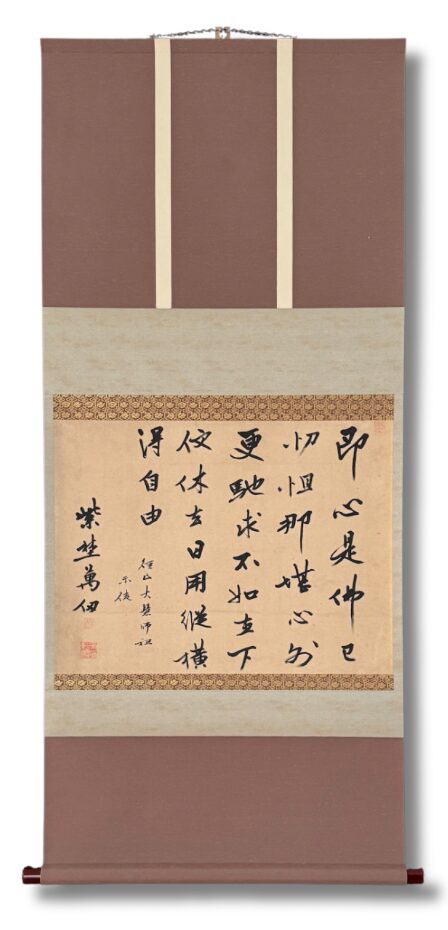 即心是佛已
忉怛那堪心外
更馳求不如直下
便休去日用縱橫
得自由
徑山大慧師祖
示偈
紫埜萬仞